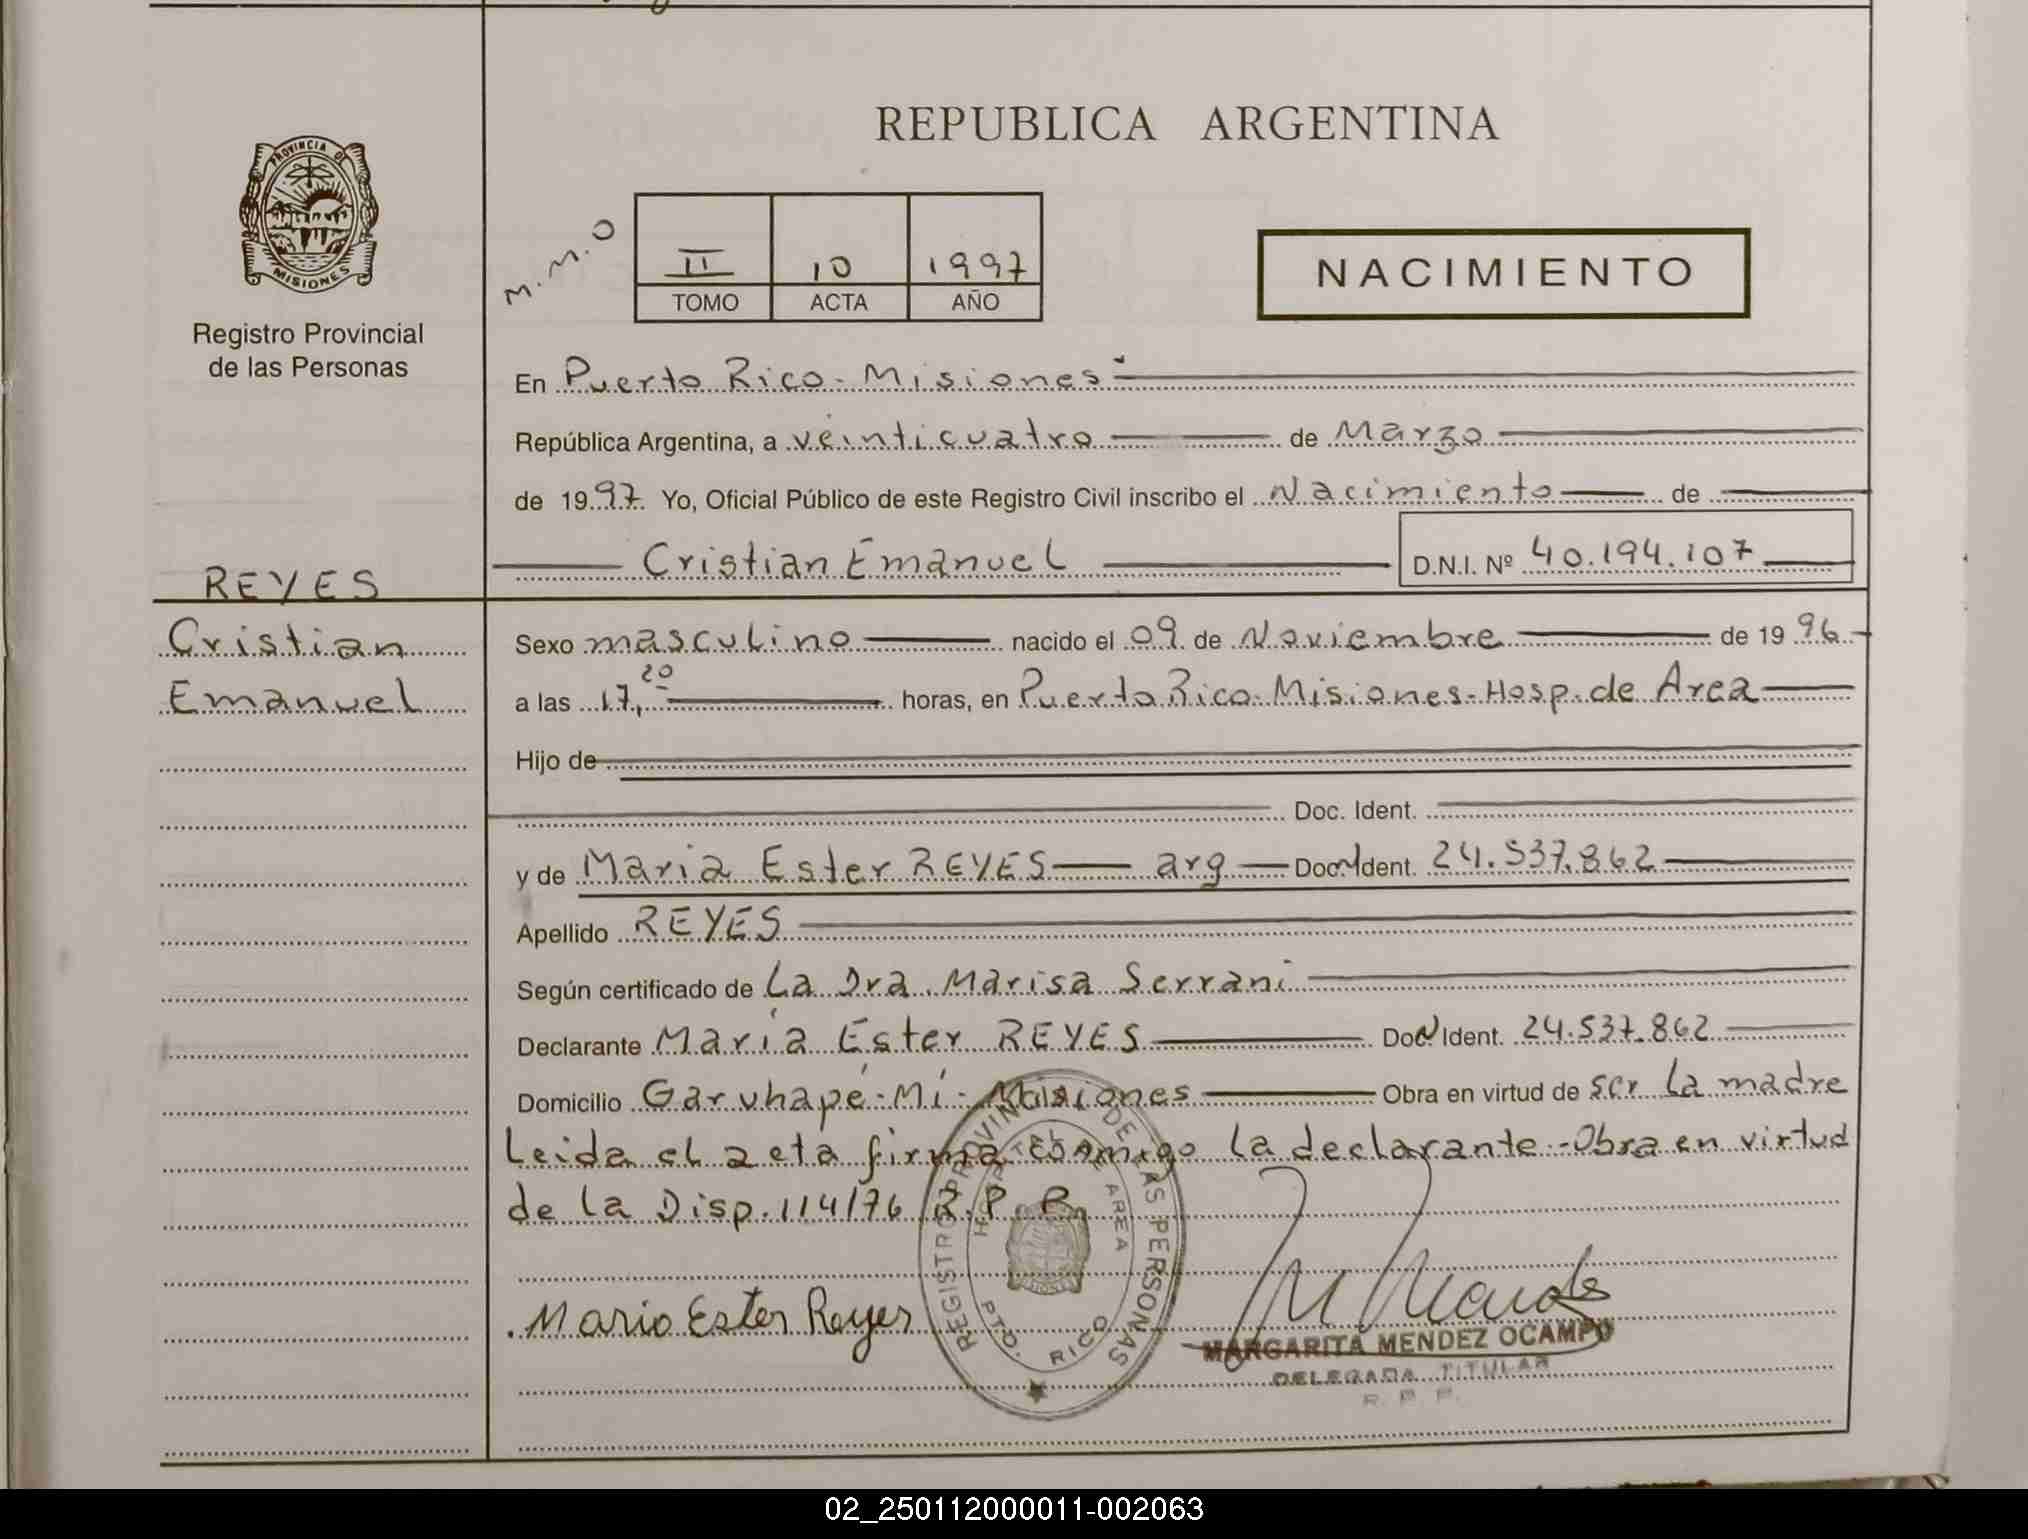 REPUBLICA ARGENTINA
PROVINCIA DE MISIONES
Registro Provincial
de las Personas
M.M.O
II 10 1997
TOMO ACTA AÑO
NACIMIENTO
En Puerto Rico - Misiones
República Argentina, a veinticuatro de Marzo
de 1997 Yo, Oficial Público de este Registro Civil inscribo el Nacimiento de
Cristian Emanuel D.N.I. Nº 40.194.107
REYES
Cristian
Emanuel
Sexo masculino nacido el 09 de Noviembre de 1996
a las 17,20 horas, en Puerto Rico - Misiones - Hosp. de Area
Hijo de
Doc. Ident.
y de Maria Ester REYES arg Doc. Ident. 24.537.862
Apellido REYES
Según certificado de La Dra. Marisa Serrani
Declarante María Ester REYES Doc. Ident. 24.537.862
Domicilio Garuhapé - Mí - Misiones Obra en virtud de ser la madre
Leida el acta firma conmigo la declarante - Obra en virtud
de la Disp. 114/76 R.P.P.
REGISTRO PROVINCIAL DE LAS PERSONAS
HOSPITAL DE AREA
PTO. RICO
Mario Ester Reyes
MARGARITA MENDEZ OCAMPO
DELEGADA TITULAR
R. P. P.
02_250112000011-002063